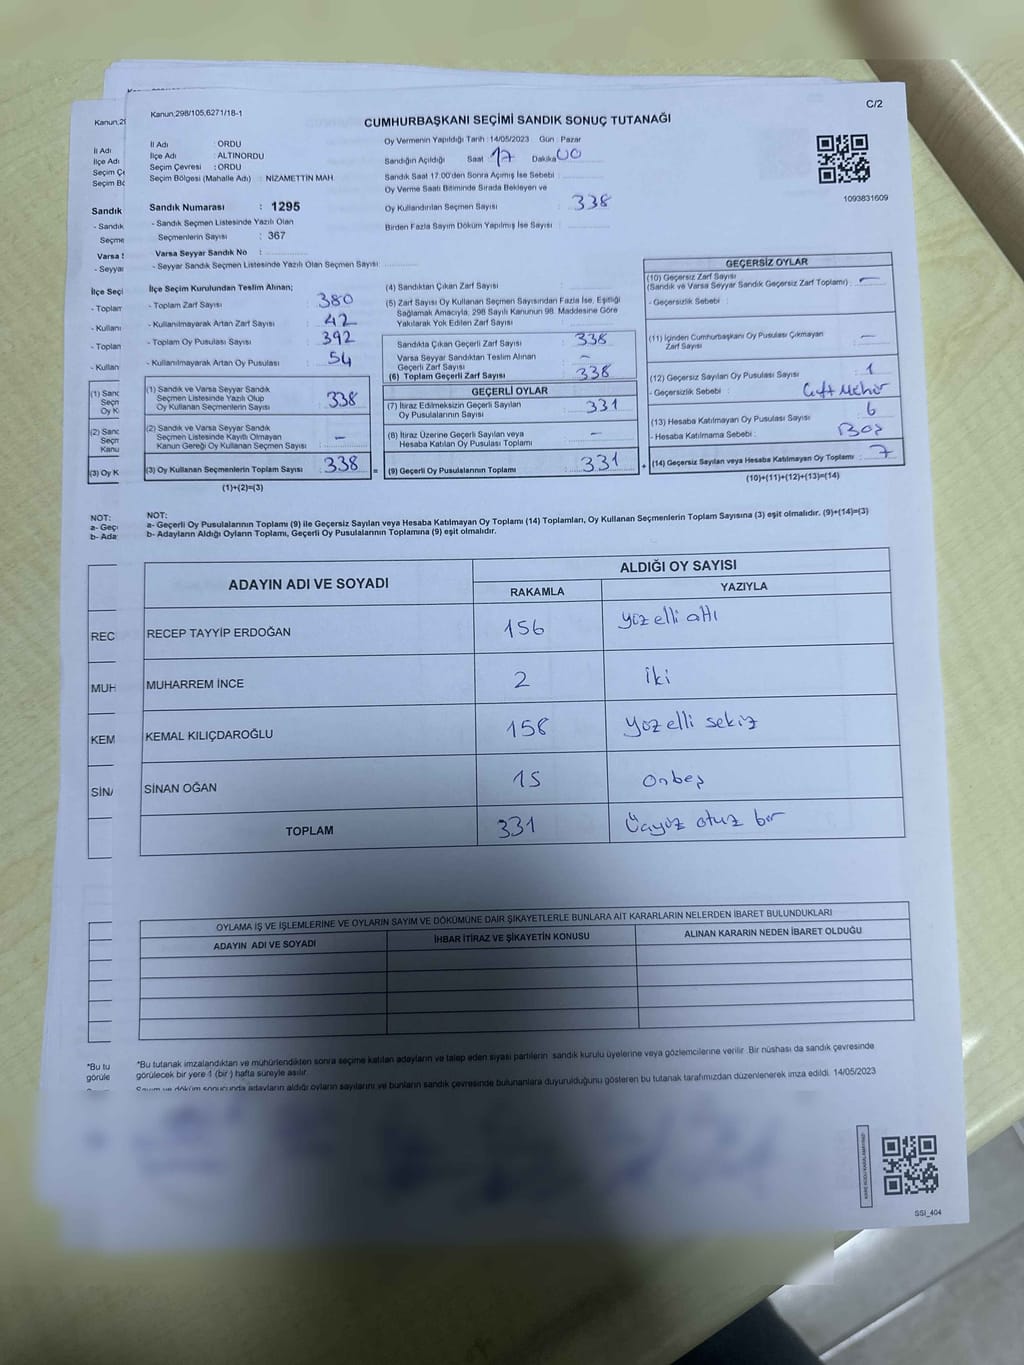 Kanun,298/105,6271/18-1
C/2
CUMHURBAŞKANI SEÇİMİ SANDIK SONUÇ TUTANAĞI
İl Adı : ORDU
İlçe Adı : ALTINORDU
Seçim Çevresi : ORDU
Seçim Bölgesi (Mahalle Adı) : NİZAMETTİN MAH.
Sandık Numarası : 1295
- Sandık Seçmen Listesinde Yazılı Olan
Seçmenlerin Sayısı : 367
Varsa Seyyar Sandık No :
- Seyyar Sandık Seçmen Listesinde Yazılı Olan Seçmen Sayısı:
Oy Vermenin Yapıldığı Tarih :14/05/2023 Gün : Pazar
Sandığın Açıldığı Saat 17 Dakika 00
Sandık Saat 17.00'den Sonra Açımış İse Sebebi :
Oy Verme Saati Bitiminde Sırada Bekleyen ve
Oy Kullandırılan Seçmen Sayısı 338
Birden Fazla Sayım Döküm Yapılmış İse Sayısı :
1093831609
İlçe Seçim Kurulundan Teslim Alınan;
- Toplam Zarf Sayısı : 380
- Kullanılmayarak Artan Zarf Sayısı : 42
- Toplam Oy Pusulası Sayısı : 392
- Kullanılmayarak Artan Oy Pusulası : 54
(1) Sandık ve Varsa Seyyar Sandık
Seçmen Listesinde Yazılı Olup
Oy Kullanan Seçmenlerin Sayısı : 338
(2) Sandık ve Varsa Seyyar Sandık
Seçmen Listesinde Kayıtlı Olmayan
Kanun Gereği Oy Kullanan Seçmen Sayısı : –
(3) Oy Kullanan Seçmenlerin Toplam Sayısı : 338
(1)+(2)=(3)
(4) Sandıktan Çıkan Zarf Sayısı :
(5) Zarf Sayısı Oy Kullanan Seçmen Sayısından Fazla İse, Eşitliği
Sağlamak Amacıyla, 298 Sayılı Kanunun 98. Maddesine Göre
Yakılarak Yok Edilen Zarf Sayısı :
Sandıkta Çıkan Geçerli Zarf Sayısı : 338
Varsa Seyyar Sandıktan Teslim Alınan
Geçerli Zarf Sayısı : –
(6) Toplam Geçerli Zarf Sayısı : 338
=
GEÇERLİ OYLAR
(7) İtiraz Edilmeksizin Geçerli Sayılan
Oy Pusulalarının Sayısı : 331
(8) İtiraz Üzerine Geçerli Sayılan veya
Hesaba Katılan Oy Pusulası Toplamı : –
(9) Geçerli Oy Pusulalarının Toplamı : 331
+
GEÇERSİZ OYLAR
(10) Geçersiz Zarf Sayısı
(Sandık ve Varsa Seyyar Sandık Geçersiz Zarf Toplamı) : –
- Geçersizlik Sebebi :
(11) İçinden Cumhurbaşkanı Oy Pusulası Çıkmayan
Zarf Sayısı : –
(12) Geçersiz Sayılan Oy Pusulası Sayısı : 1
- Geçersizlik Sebebi : Çift Mühür
(13) Hesaba Katılmayan Oy Pusulası Sayısı : 6
- Hesaba Katılmama Sebebi : Boş
(14) Geçersiz Sayılan veya Hesaba Katılmayan Oy Toplamı : 7
(10)+(11)+(12)+(13)=(14)
NOT:
a- Geçerli Oy Pusulalarının Toplamı (9) ile Geçersiz Sayılan veya Hesaba Katılmayan Oy Toplamı (14) Toplamları, Oy Kullanan Seçmenlerin Toplam Sayısına (3) eşit olmalıdır. (9)+(14)=(3)
b- Adayların Aldığı Oyların Toplamı, Geçerli Oy Pusulalarının Toplamına (9) eşit olmalıdır.
ADAYIN ADI VE SOYADI
ALDIĞI OY SAYISI
RAKAMLA YAZIYLA
RECEP TAYYİP ERDOĞAN 156 yüz elli altı
MUHARREM İNCE 2 iki
KEMAL KILIÇDAROĞLU 158 yüz elli sekiz
SİNAN OĞAN 15 onbeş
TOPLAM 331 Üçyüz otuz bir
OYLAMA İŞ VE İŞLEMLERİNE VE OYLARIN SAYIM VE DÖKÜMÜNE DAİR ŞİKAYETLERLE BUNLARA AİT KARARLARIN NELERDEN İBARET BULUNDUKLARI
ADAYIN ADI VE SOYADI İHBAR İTİRAZ VE ŞİKAYETİN KONUSU ALINAN KARARIN NEDEN İBARET OLDUĞU
*Bu tutanak imzalandıktan ve mühürlendikten sonra seçime katılan adayların ve talep eden siyasi partilerin sandık kurulu üyelerine veya gözlemcilerine verilir. Bir nüshası da sandık çevresinde
görülecek bir yere 1 (bir) hafta süreyle asılır.
Sayım ve döküm sonucunda adayların aldığı oyların sayılarını ve bunların sandık çevresinde bulunanlara duyurulduğunu gösteren bu tutanak tarafımızdan düzenlenerek imza edildi. 14/05/2023
SSI_404